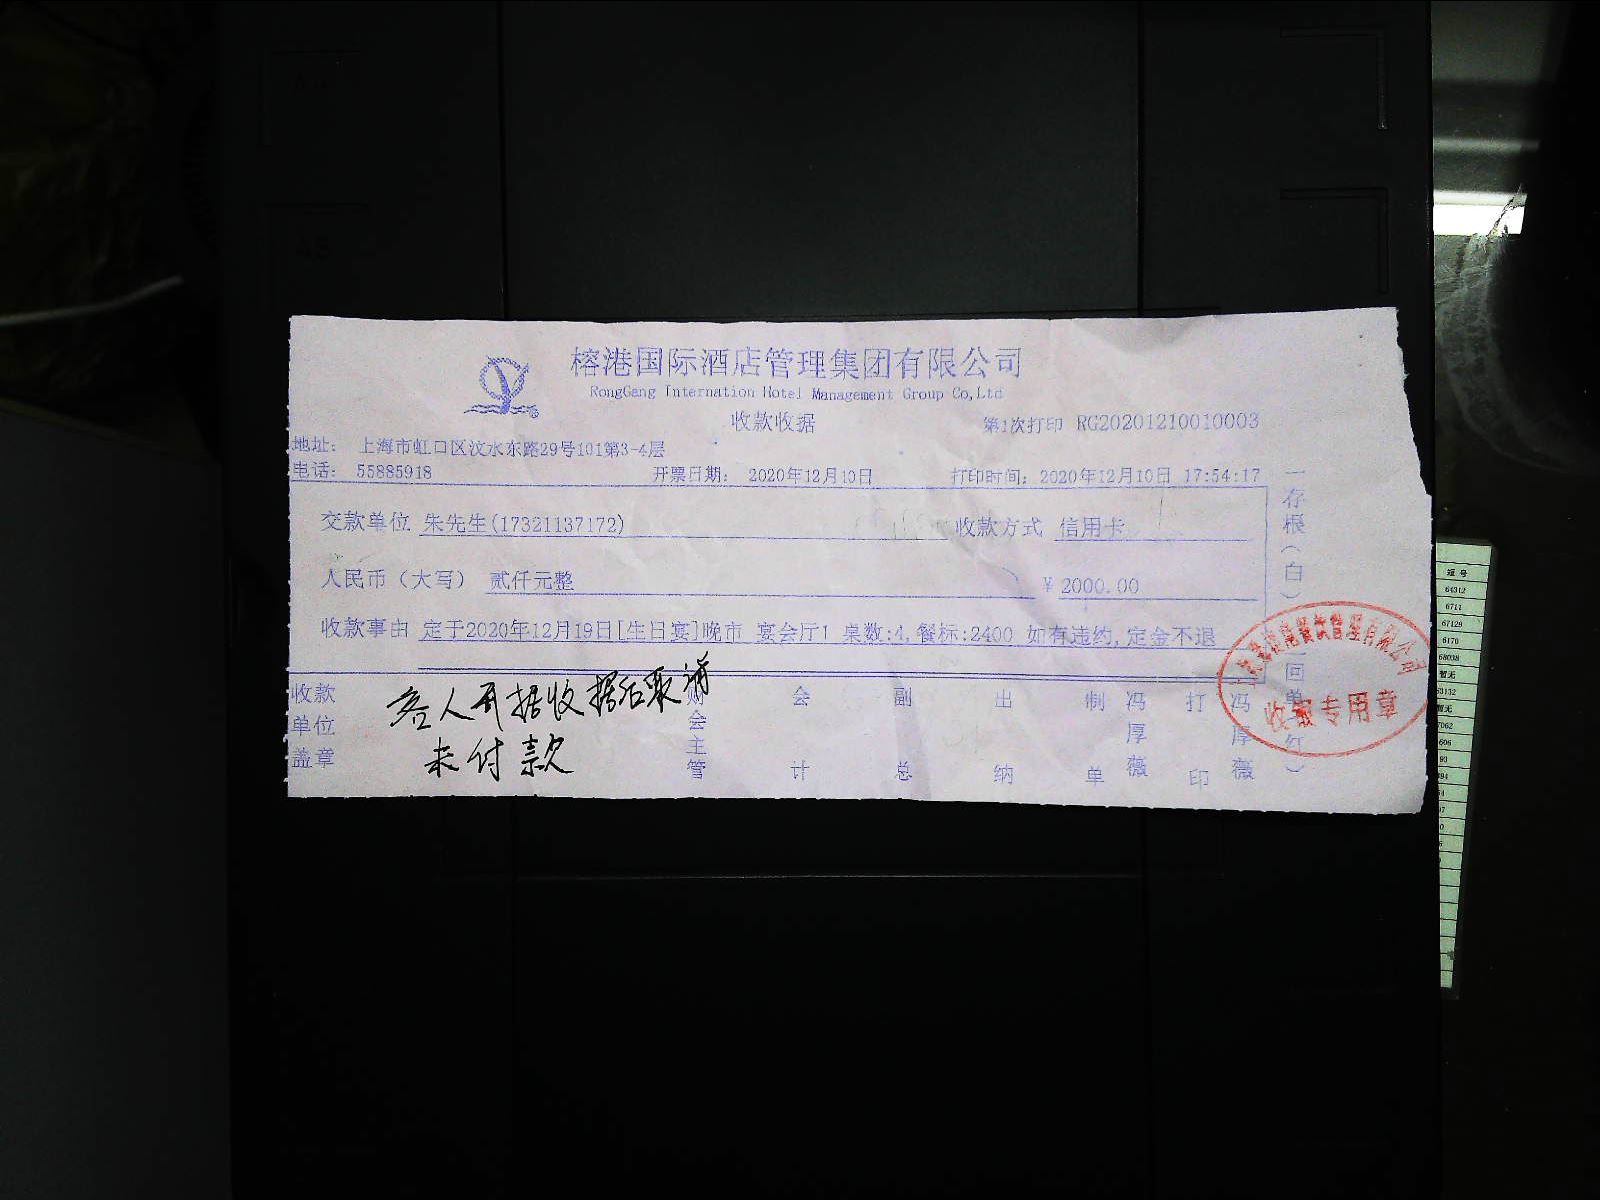 榕港国际酒店管理集团有限公司
RongGang Internation Hotel Management Group Co,Ltd
收款收据
第1次打印 RG20201210010003
地址： 上海市虹口区汶水东路29号101第3-4层
电话： 55885918 开票日期： 2020年12月10日 打印时间： 2020年12月10日 17:54:17
交款单位 朱先生(17321137172) 收款方式 信用卡
人民币（大写） 贰仟元整 ￥2000.00
收款事由 定于2020年12月19日[生日宴]晚市 宴会厅1 桌数:4,餐标:2400 如有违约,定金不退
收款单位盖章 财会主管 会计 副总 出纳 制单 冯厚薇 打印 冯厚薇
客人开据收据后取消
未付款
一存根（白）
二回单（红）
餐饮管理有限公司
收据专用章
短号
64312
6711
67129
6170
68038
暂无
63132
暂无